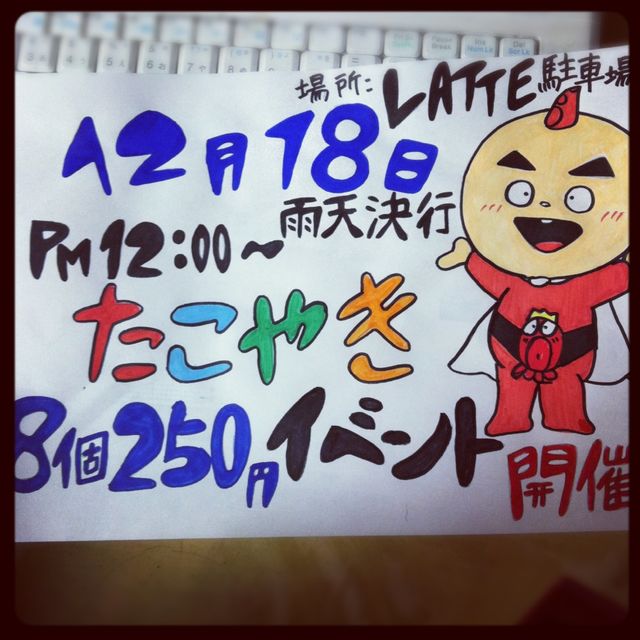 場所: LATTE 駐車場
12月18日
雨天決行
PM12:00～
たこやき
8個250円 イベント
開催